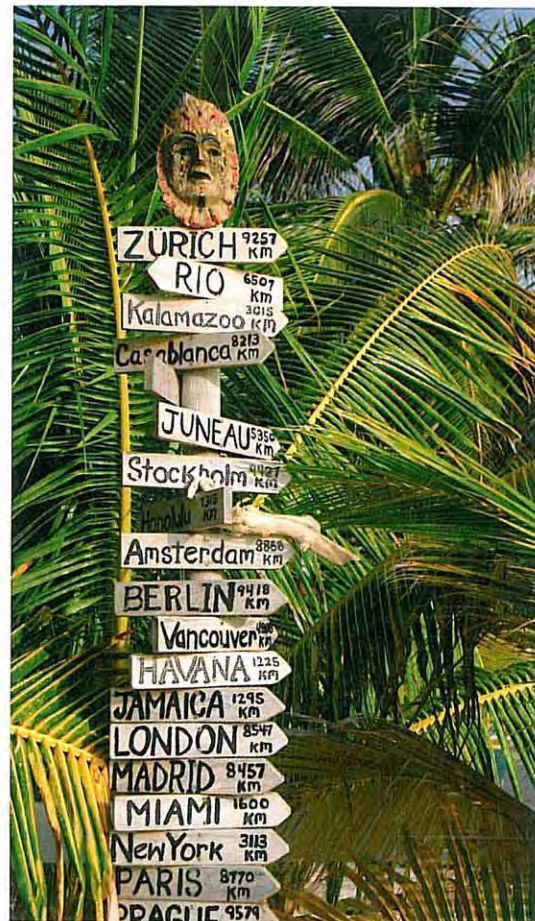 ZÜRICH 9257 KM
RIO 6507 KM
Kalamazoo 3015 KM
Casablanca 8213 KM
JUNEAU 5356 KM
Stockholm 9427 KM
Honolulu KM
Amsterdam 8866 KM
BERLIN 9418 KM
Vancouver KM
HAVANA 1225 KM
JAMAICA 1295 KM
LONDON 8547 KM
MADRID 8457 KM
MIAMI 1600 KM
New York 3113 KM
PARIS 8770 KM
PRAGUE 9579